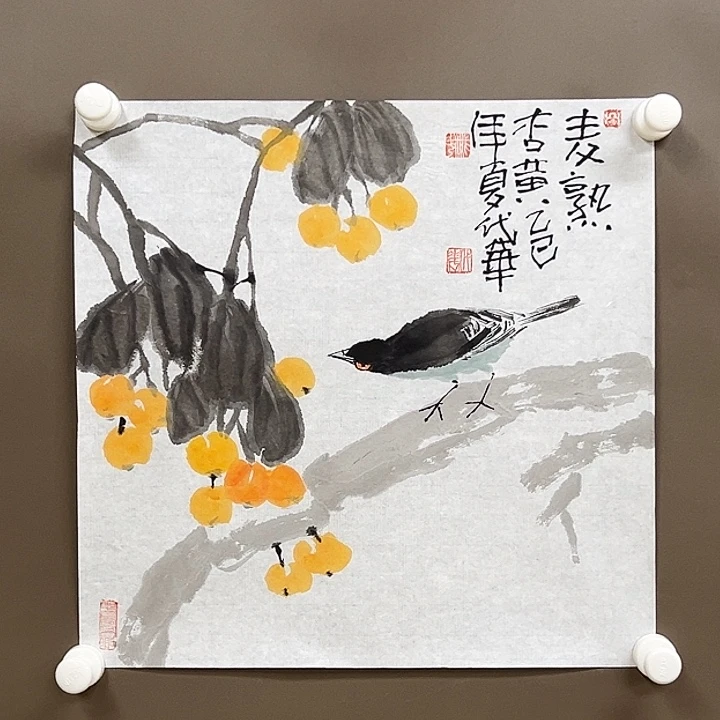 麦熟
杏黄乙巳
年夏代華